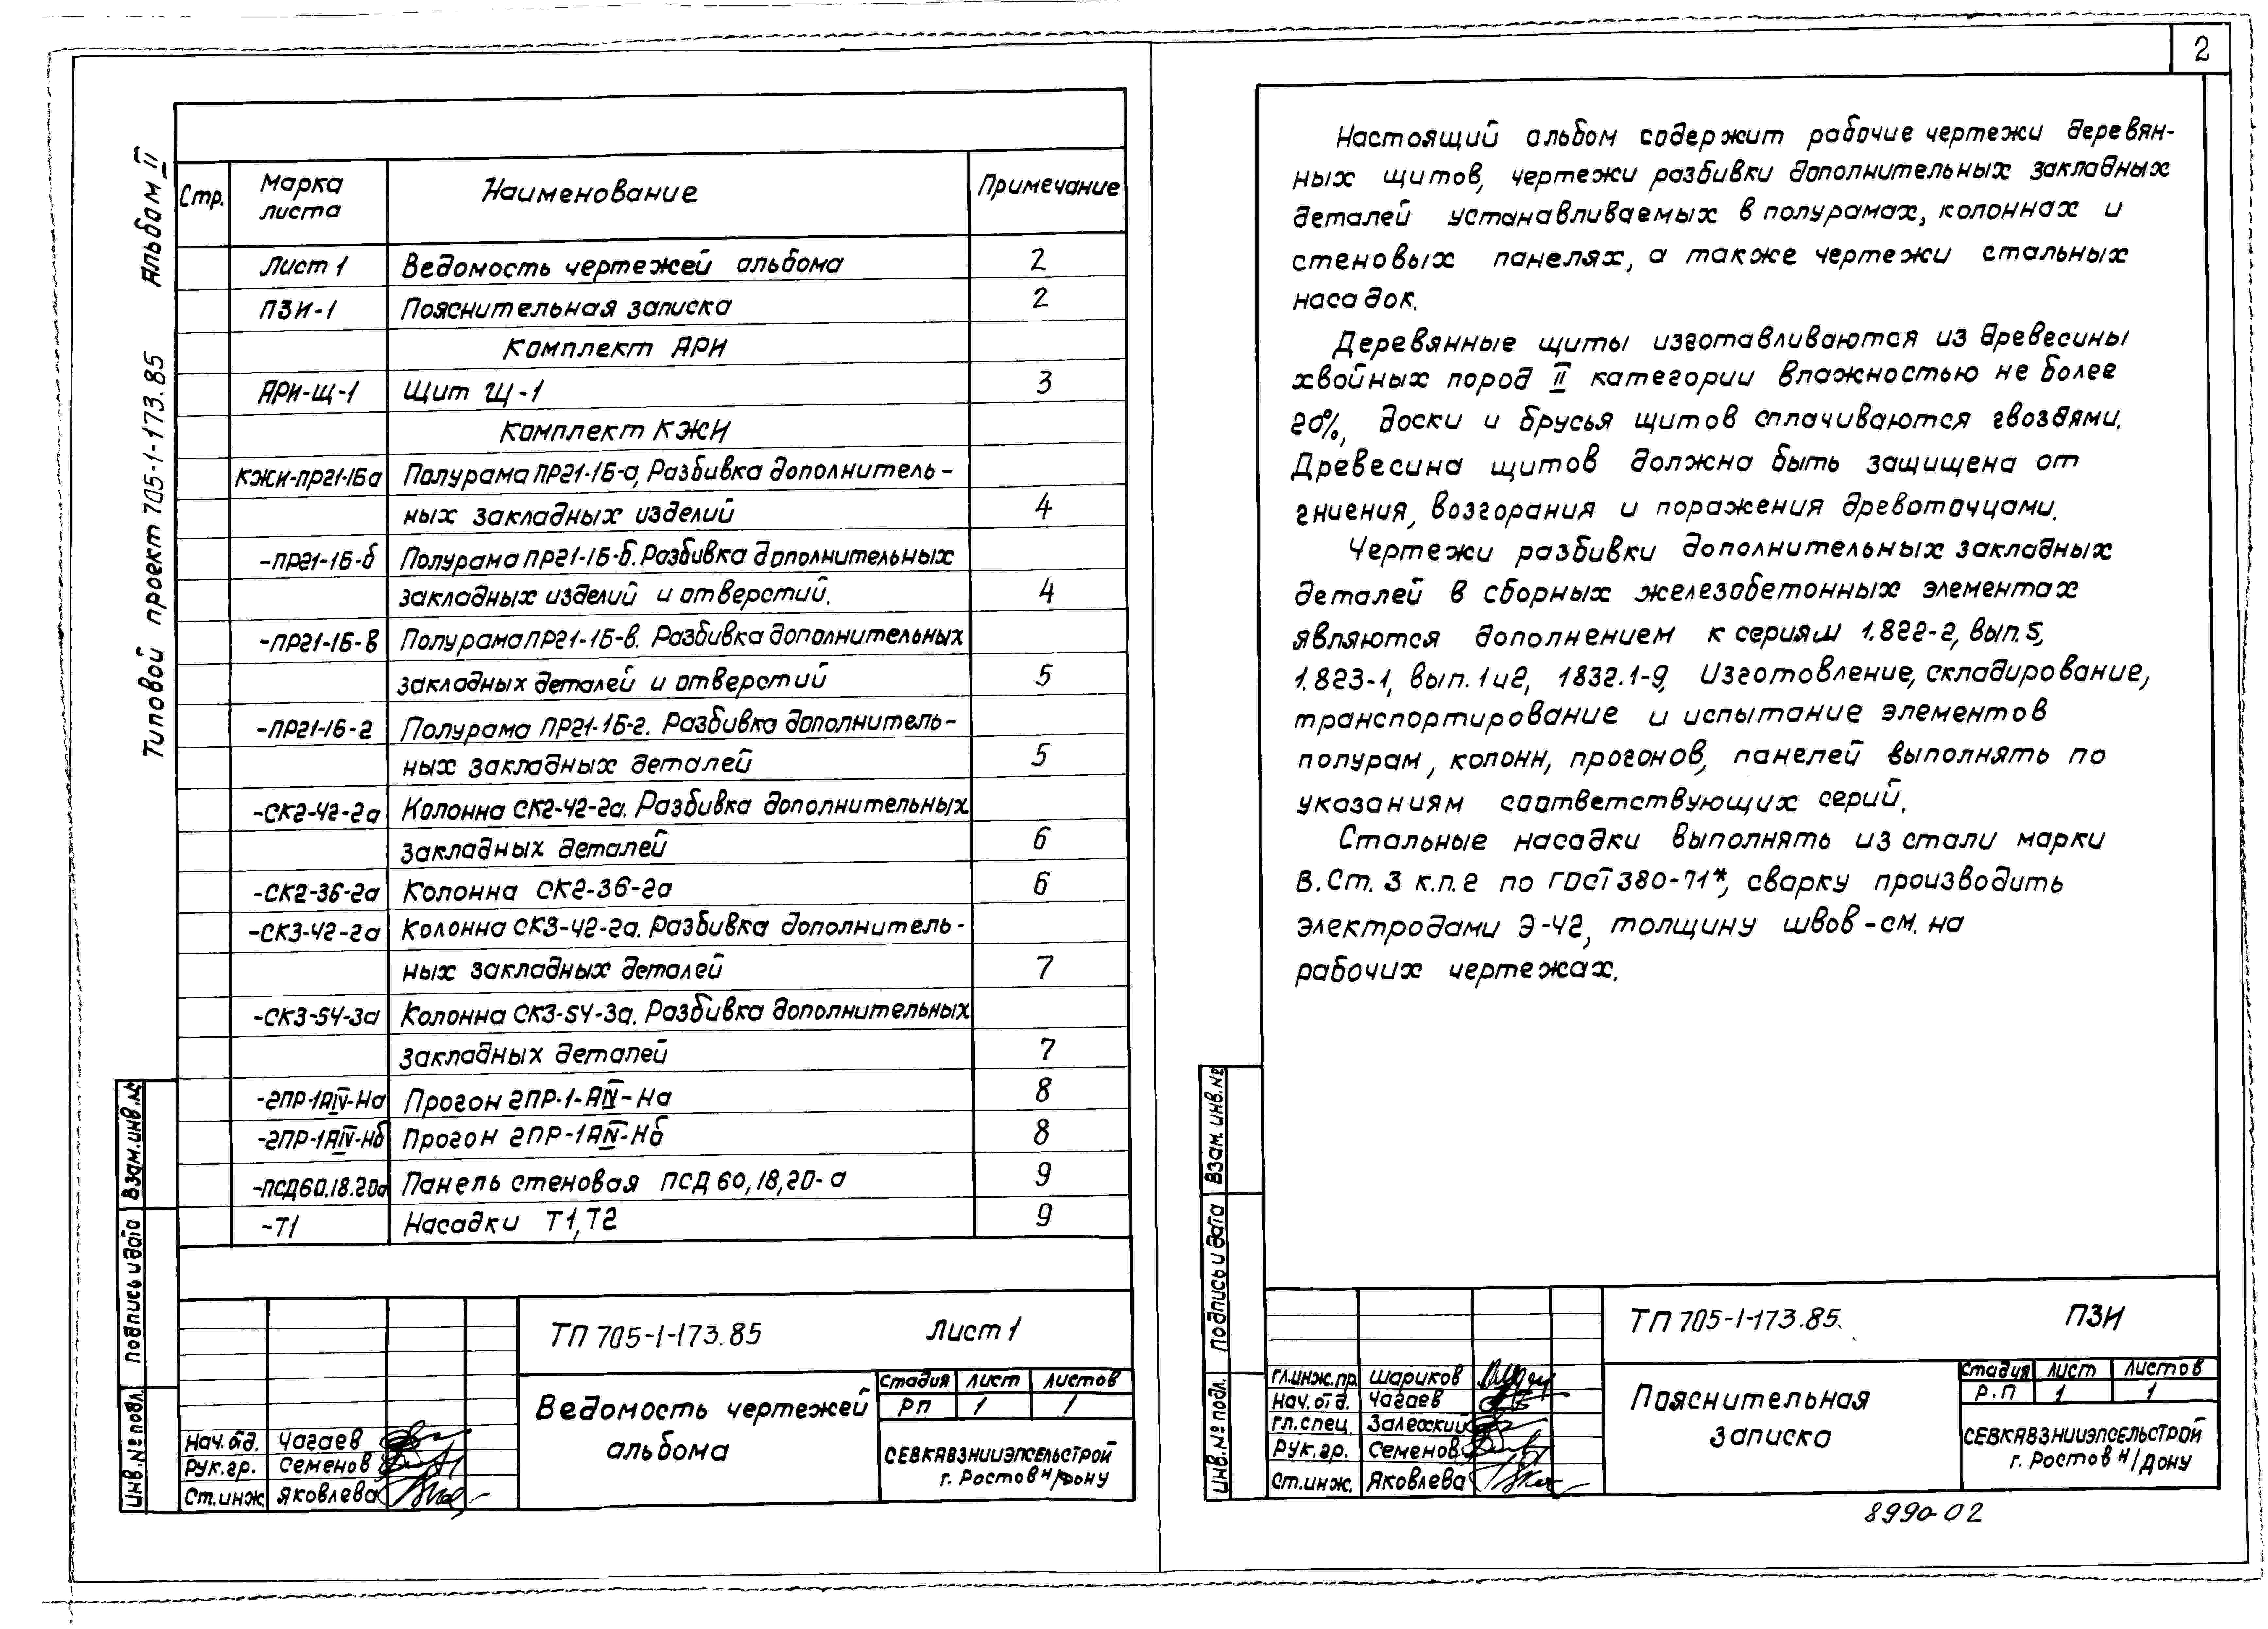 2
Альбом II
Типовой проект 705-1-173.85
Стр. Марка листа Наименование Примечание
Лист 1 Ведомость чертежей альбома 2
ПЗИ-1 Пояснительная записка 2
Комплект АРИ
АРИ-Щ-1 Щит Щ-1 3
Комплект КЖИ
КЖИ-ПР21-1Ба Полурама ПР21-1Б-а, Разбивка дополнитель-
ных закладных изделий 4
-ПР21-1Б-б Полурама ПР21-1Б-б. Разбивка дополнительных
закладных изделий и отверстий. 4
-ПР21-1Б-в Полурама ПР21-1Б-в. Разбивка дополнительных
закладных деталей и отверстий 5
-ПР21-1Б-г Полурама ПР21-1Б-г. Разбивка дополнитель-
ных закладных деталей 5
-СК2-42-2а Колонна СК2-42-2а. Разбивка дополнительных
закладных деталей 6
-СК2-36-2а Колонна СК2-36-2а 6
-СК3-42-2а Колонна СК3-42-2а. Разбивка дополнитель-
ных закладных деталей 7
-СК3-54-3а Колонна СК3-54-3а. Разбивка дополнительных
закладных деталей 7
-2ПР-1АIV-На Прогон 2ПР-1-АIV-На 8
-2ПР-1АIV-Нб Прогон 2ПР-1АIV-Нб 8
-ПСД60.18.20а Панель стеновая ПСД 60,18,20-а 9
-Т1 Насадки Т1,Т2 9
Взам.инв.№
Подпись и дата
Инв.№ подл.
ТП 705-1-173.85 Лист 1
Ведомость чертежей
альбома
Стадия Лист Листов
РП 1 1
СЕВКАВЗНИИЭПСЕЛЬСТРОЙ
г. Ростов н/дону
Нач.отд. Чагаев
Рук.гр. Семенов
Ст.инж. Яковлева
Настоящий альбом содержит рабочие чертежи деревян-
ных щитов, чертежи разбивки дополнительных закладных
деталей устанавливаемых в полурамах, колоннах и
стеновых панелях, а также чертежи стальных
насадок.
Деревянные щиты изготавливаются из древесины
хвойных пород II категории влажностью не более
20%, доски и брусья щитов сплачиваются гвоздями.
Древесина щитов должна быть защищена от
гниения, возгорания и поражения древоточцами.
Чертежи разбивки дополнительных закладных
деталей в сборных железобетонных элементах
являются дополнением к сериям 1.822-2, вып.5,
1.823-1, вып.1и2, 1832.1-9, Изготовление, складирование,
транспортирование и испытание элементов
полурам, колонн, прогонов, панелей выполнять по
указаниям соответствующих серий.
Стальные насадки выполнять из стали марки
В.Ст. 3 к.п.2 по ГОСТ 380-71*, сварку производить
электродами Э-42, толщину швов-см. на
рабочих чертежах.
Взам. инв.№
Подпись и дата
Инв.№ подл.
ТП 705-1-173.85. ПЗИ
Пояснительная
записка
Стадия Лист Листов
Р.П 1 1
СЕВКАВЗНИИЭПСЕЛЬСТРОЙ
г. Ростов н/дону
Гл.инж.пр. Шариков
Нач.отд. Чагаев
Гл.спец. Залесский
Рук.гр. Семенов
Ст.инж. Яковлева
8990-02